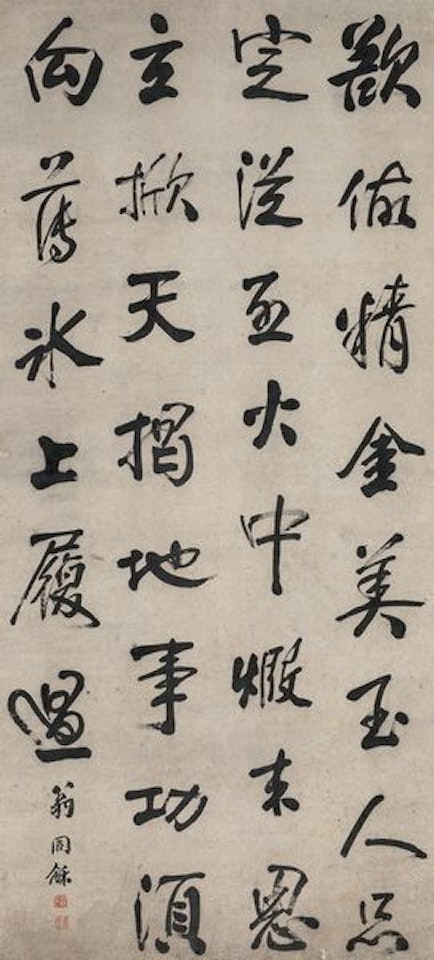 欲做精金美玉人品
定從烈火中煅來思
立掀天揭地事功須
向薄冰上履過
翁同龢